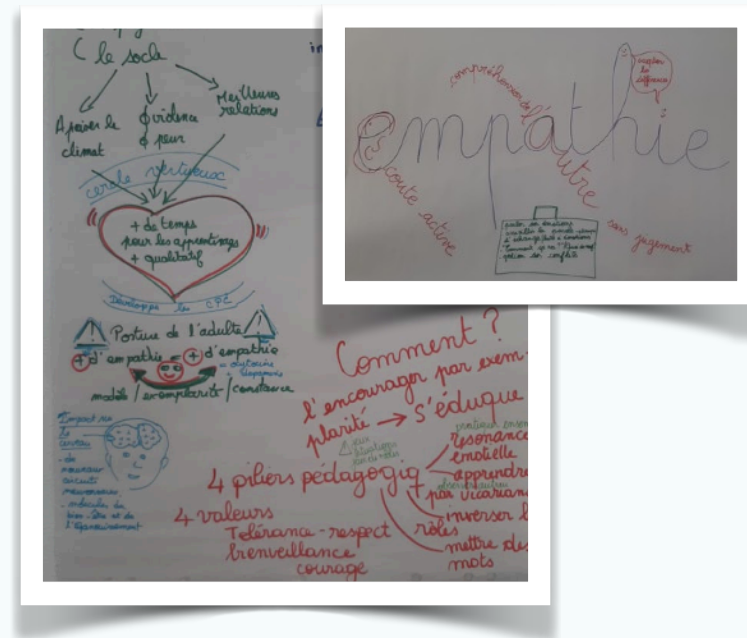 ( le socle
Apaiser le climat
∅ violence
∅ peur
Meilleures relations
cercle vertueux
+ de temps
pour les apprentissages
+ qualitatif
Développe les CPS
Posture de l'adulte
+ d'empathie = + d'empathie
= ocytocine
modèle / exemplarité / constance
Impact sur
le
cerveau
- de
nouveaux
circuits
neuronaux
- molécules du
bien-être et de
l'épanouissement
Comment ?
l'encourager par exem-
plarité → S'éduque
4 piliers pédagogiq
résonance
émotielle
apprendre
par vicarian
inverser l
rôles
mettre des
mots
4 valeurs
Tolérance - respect
bienveillance
courage
empathie
compréhension de l'autre
écoute active
sans jugement
accepter
la
différence